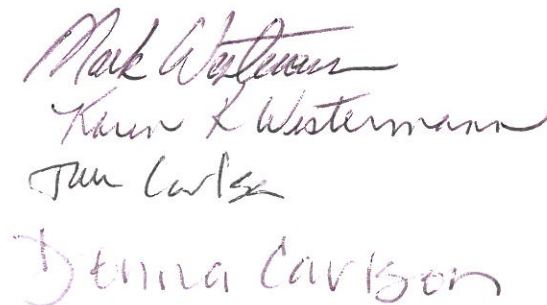 Mark Westermann
Karen K Westermann
Carlson
Donna Carlson